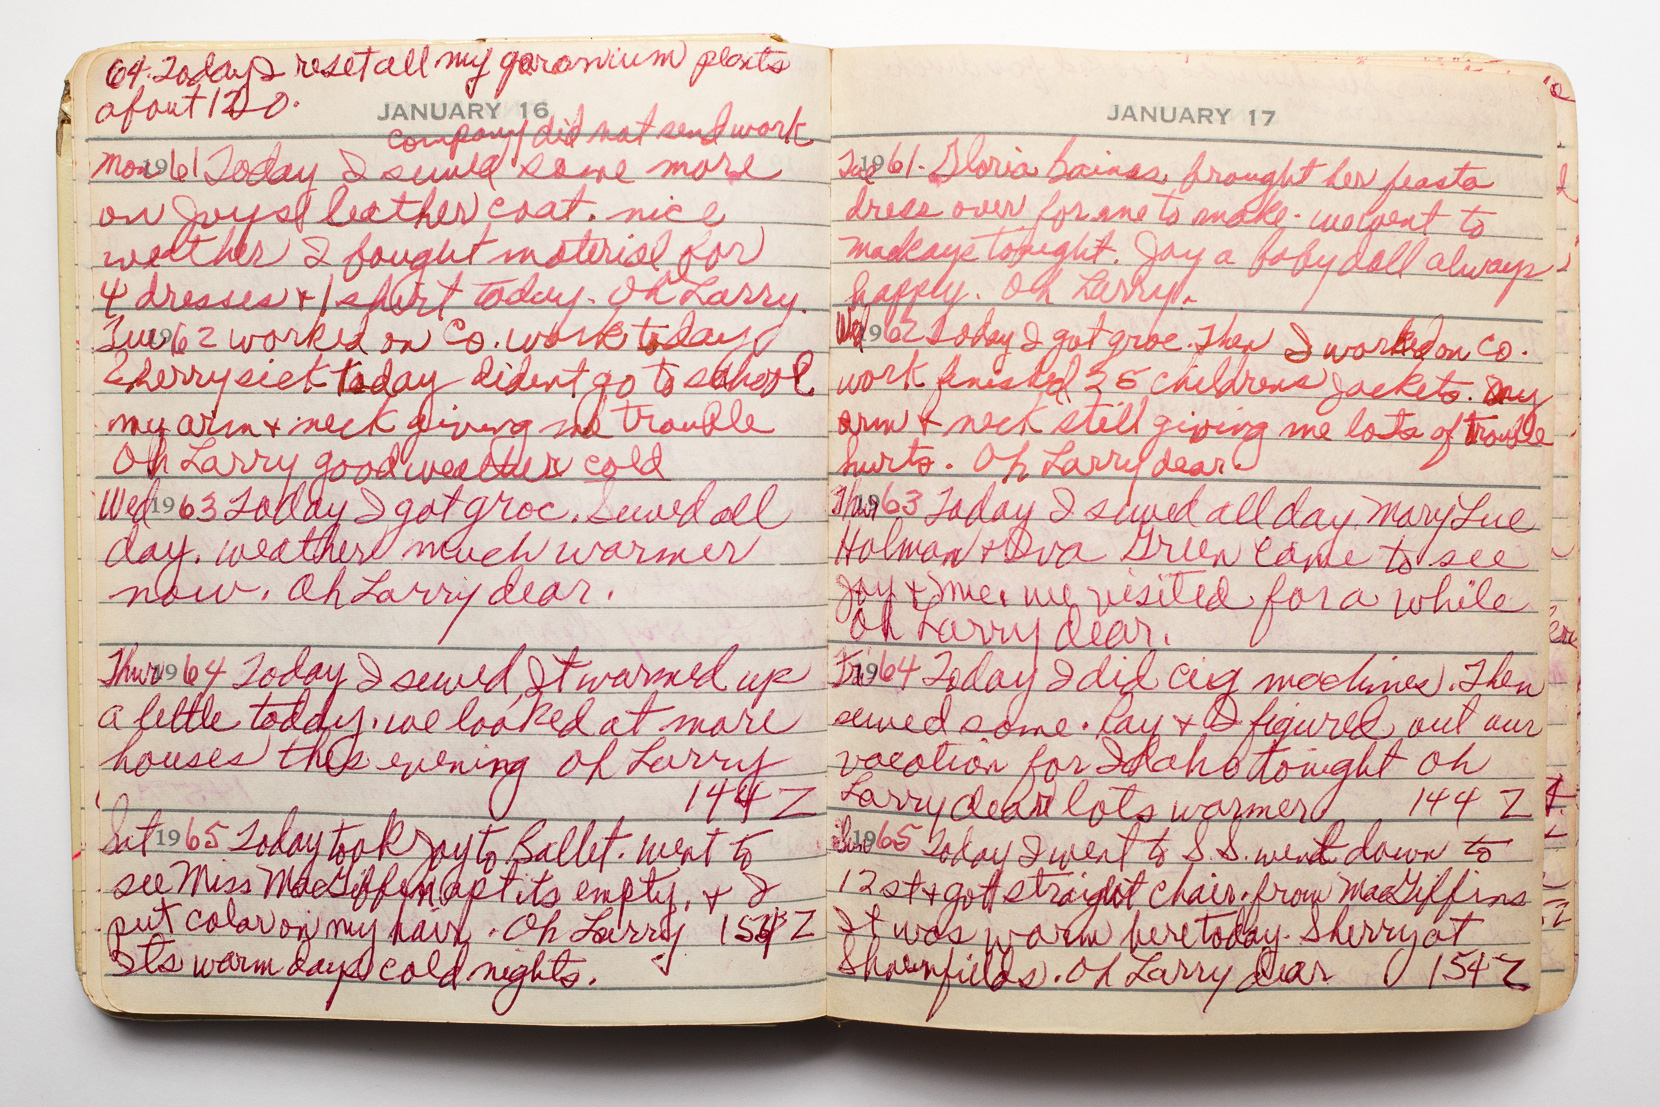 64. Today I reset all my geranium plants
about 120.
JANUARY 16
company did not send work
Mon 1961 Today I sewed some more
on Joys leather coat. nice
weather I bought material for
4 dresses + 1 shirt today. Oh Larry.
Tue 1962 worked on Co. work today
Sherry sick today dident go to school
my arm + neck giving me trouble
Oh Larry good weather cold
Wed 1963 Today I got groc. Sewed all
day. weather much warmer
now. Oh Larry dear.
Thur 1964 Today I sewed It warmed up
a little today. we looked at more
houses this evening Oh Larry
144 Z
Sat 1965 Today took Joy to Ballet. went to
see Miss MacGiffen apt its empty. + I
put color on my hair. Oh Larry 154 Z
Its warm days cold nights.
JANUARY 17
Tue 1961. Gloria Baines, brought her feasta
dress over for me to make. we went to
mackays tonight. Joy a baby doll always
happy. Oh Larry.
Wed 1962 Today I got groc. Then I worked on Co.
work finished 35 childrens Jackets. My
arm + neck still giving me lots of trouble
hurts. Oh Larry dear.
Thur 1963 Today I sewed all day. Mary Lue
Holman + Iva Green came to see
Joy + me. we visited for a while
Oh Larry dear.
Fri 1964 Today I did cig machines. Then
sewed some. Ray + I figured out our
vacation for Idaho tonight Oh
Larry dear lots warmer 144 Z
Sun 1965 Today I went to S.S. went down to
12 st + got straight chair. from MacGiffins
It was warm here today. Sherry at
Shoenfields. Oh Larry dear 154 Z